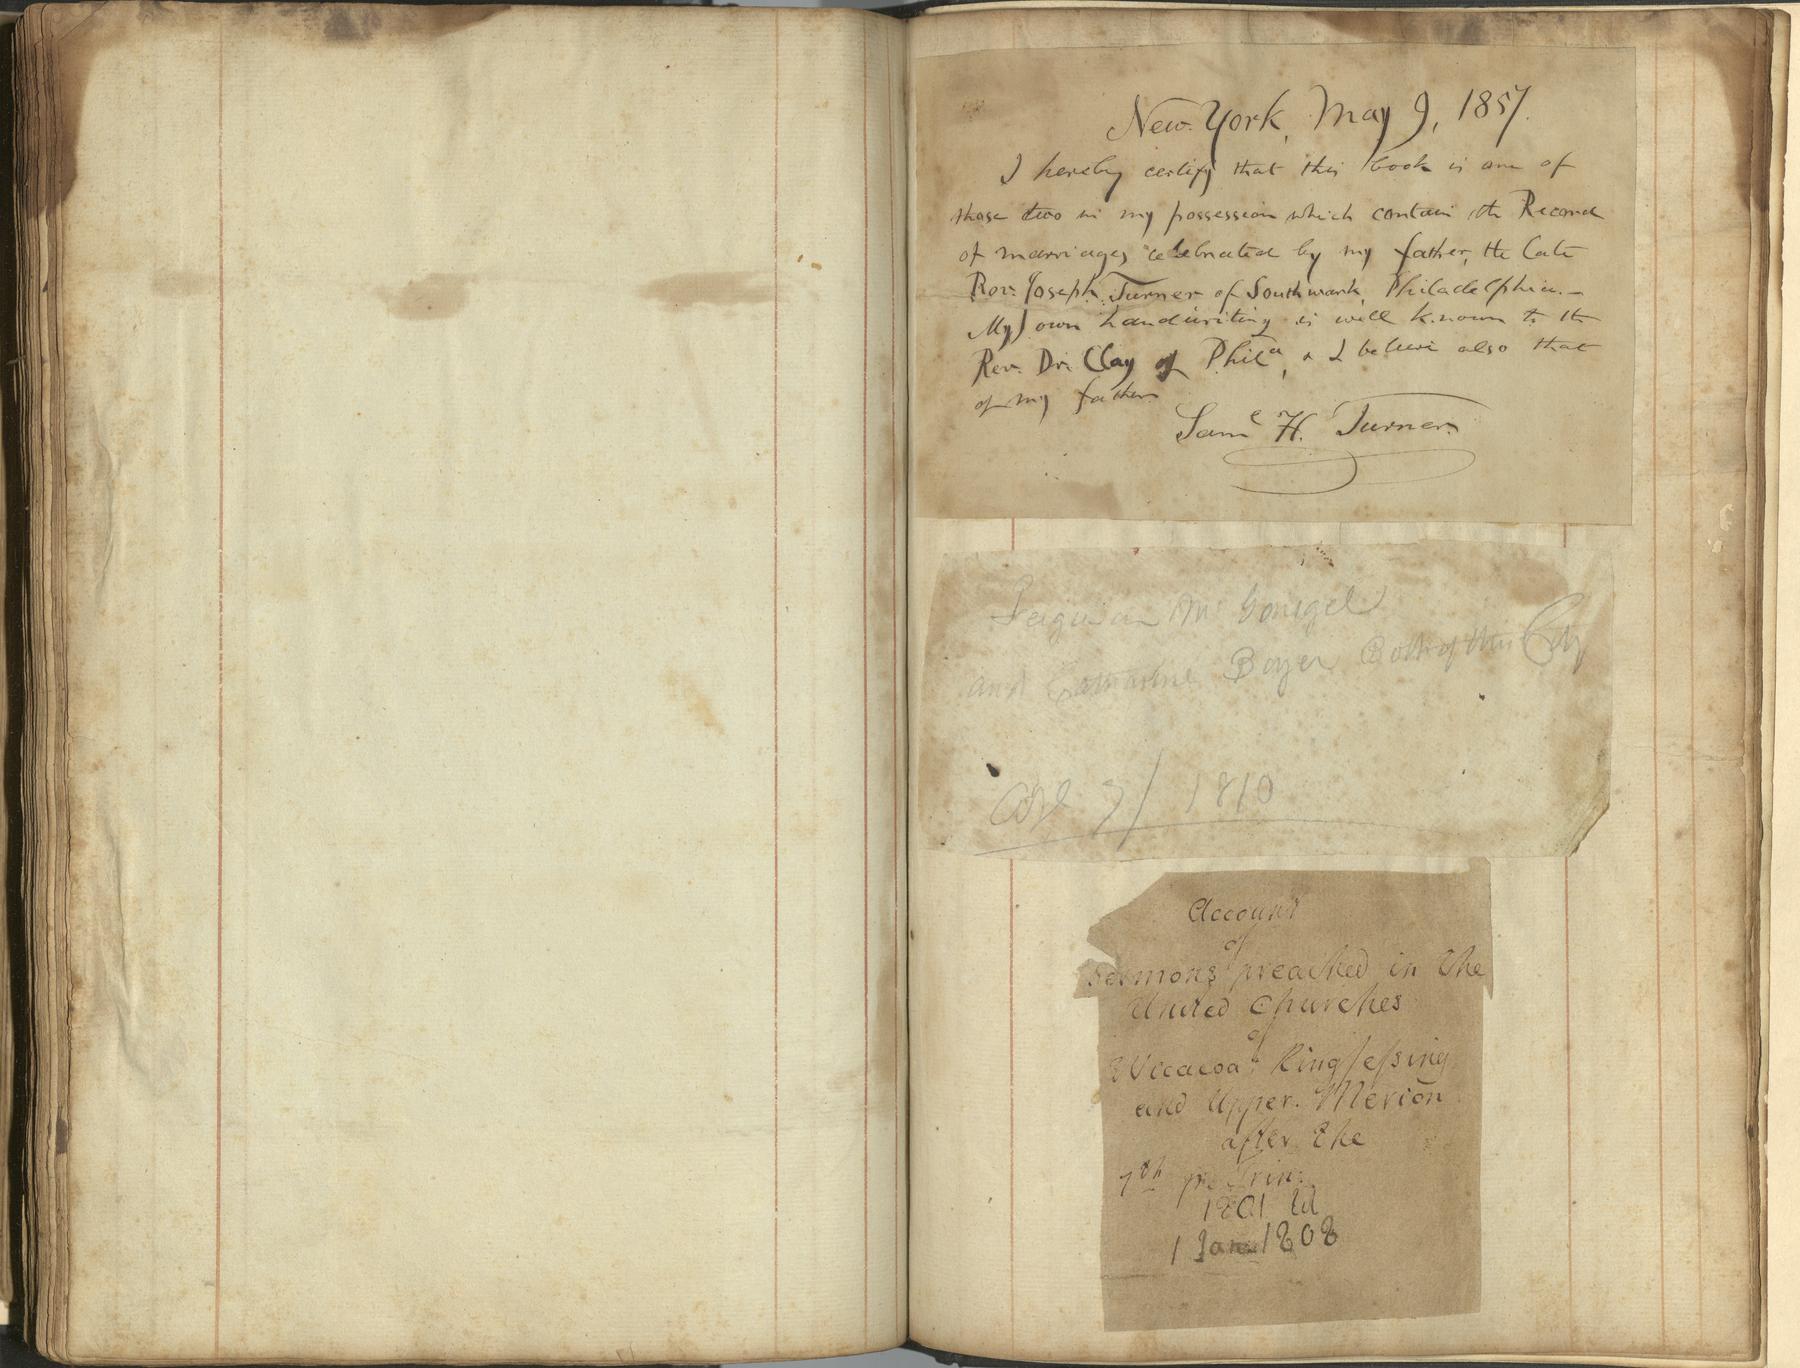 New York, May 9, 1857.
I hereby certify that this book is one of
those two in my possession which contain the Record
of marriages celebrated by my father, the late
Rev. Joseph Turner of Southwark, Philadelphia.—
My own handwriting is well known to the
Rev. Dr. Clay of Phila, & I believe also that
of my father
Saml H. Turner
Mc Gonigel
and Catharine Boyer Both of this City
7/ 1810
Account
of
Sermons preached in the
United Churches
of
Wicacoa, Kingsessing
and Upper. Merion
after the
7th Trin:
1801 til
1 Jan 1808